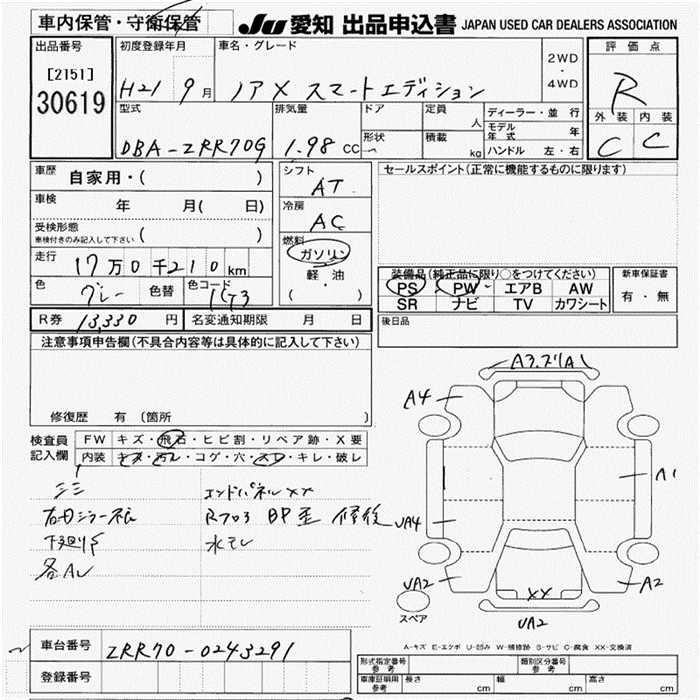 車内保管・守衛保管
JU 愛知 出品申込書 JAPAN USED CAR DEALERS ASSOCIATION
出品番号
[2151]
30619
初度登録年月
H21 9月
車名・グレード
ノア X スマートエディション
2WD
・
4WD
評価点
R
外装 内装
C C
型式
DBA-ZRR70G
排気量
1.98 CC
ドア
形状
定員
人
積載
kg
ディーラー・並行
モデル年式 年
ハンドル 左・右
車歴
自家用・( )
車検
年 月( 日)
受検形態
車検付きのみ記入して下さい ( )
走行
17万0千210km
色
グレー
色替
色コード
1G3
シフト
AT
冷房
AC
燃料
ガソリン
軽油
(・)
セールスポイント(正常に機能するものに限ります)
装備品(純正品に限り○をつけてください)
PS PW エアB AW
SR ナビ TV カワシート
新車保証書
有・無
後日品
R券 13,330 円
名変通知期限 月 日
注意事項申告欄(不具合内容等は具体的に記入して下さい)
修復歴 有 (箇所 )
検査員
記入欄
FW キズ・飛石・ヒビ割・リペア跡・X要
内装 キズ・汚レ・コゲ・穴・スレ・キレ・破レ
エンドパネルXX
各AU
A4
A1
A1
UA4
UA2
XX
UA2
A2
スペア
A-キズ E-エクボ U-凹み W-補修跡 S-サビ C-腐食 XX-交換済
車台番号
ZRR70-0243291
登録番号
形式指定番号
参考
類別区分番号
参考
車庫証明用
参考
長さ cm
幅 cm
高さ cm